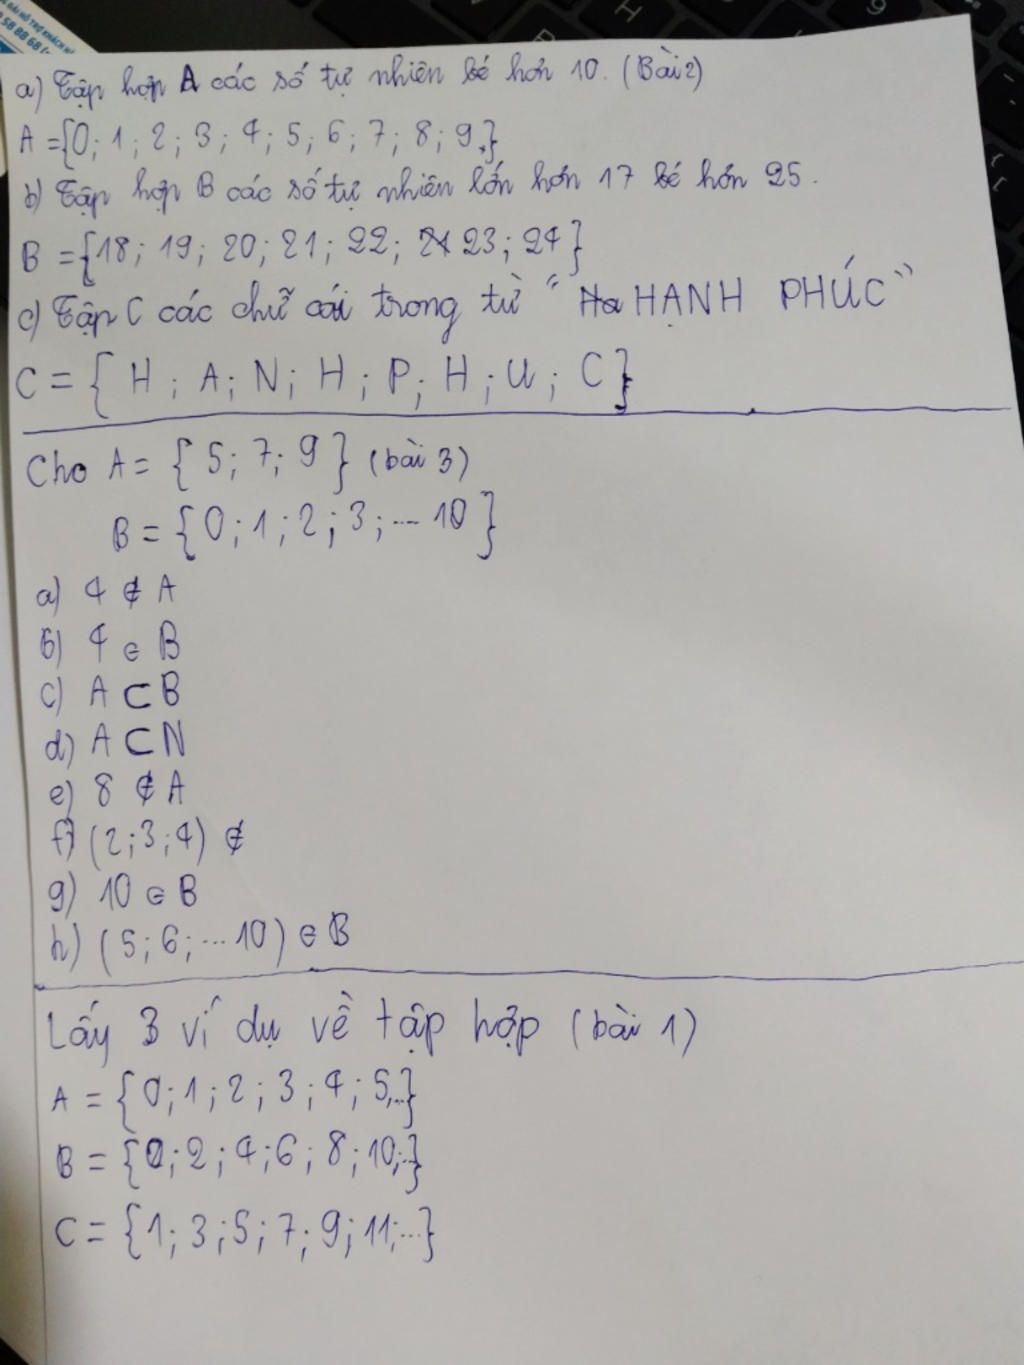 58 88 68
a) Tập hợp A các số tự nhiên bé hơn 10. (Bài 2)
A = {0; 1; 2; 3; 4; 5; 6; 7; 8; 9.}
b) Tập hợp B các số tự nhiên lớn hơn 17 bé hơn 25.
B = {18; 19; 20; 21; 22; 23; 24}
c) Tập C các chữ cái trong từ "HẠNH PHÚC"
C = { H ; A; N; H ; P; H ; U ; C }
Cho A = { 5; 7; 9 } (bài 3)
B = { 0; 1; 2; 3; ... 10 }
a) 4 ∉ A
b) 4 ∈ B
c) A ⊂ B
d) A ⊂ N
e) 8 ∉ A
f) (2;3;4) ∉
g) 10 ∈ B
h) (5; 6; ... 10) ∈ B
Lấy 3 ví dụ về tập hợp (bài 1)
A = { 0; 1; 2; 3; 4; 5,..}
B = {0; 2; 4; 6; 8; 10;..}
C = {1; 3; 5; 7; 9; 11;...}